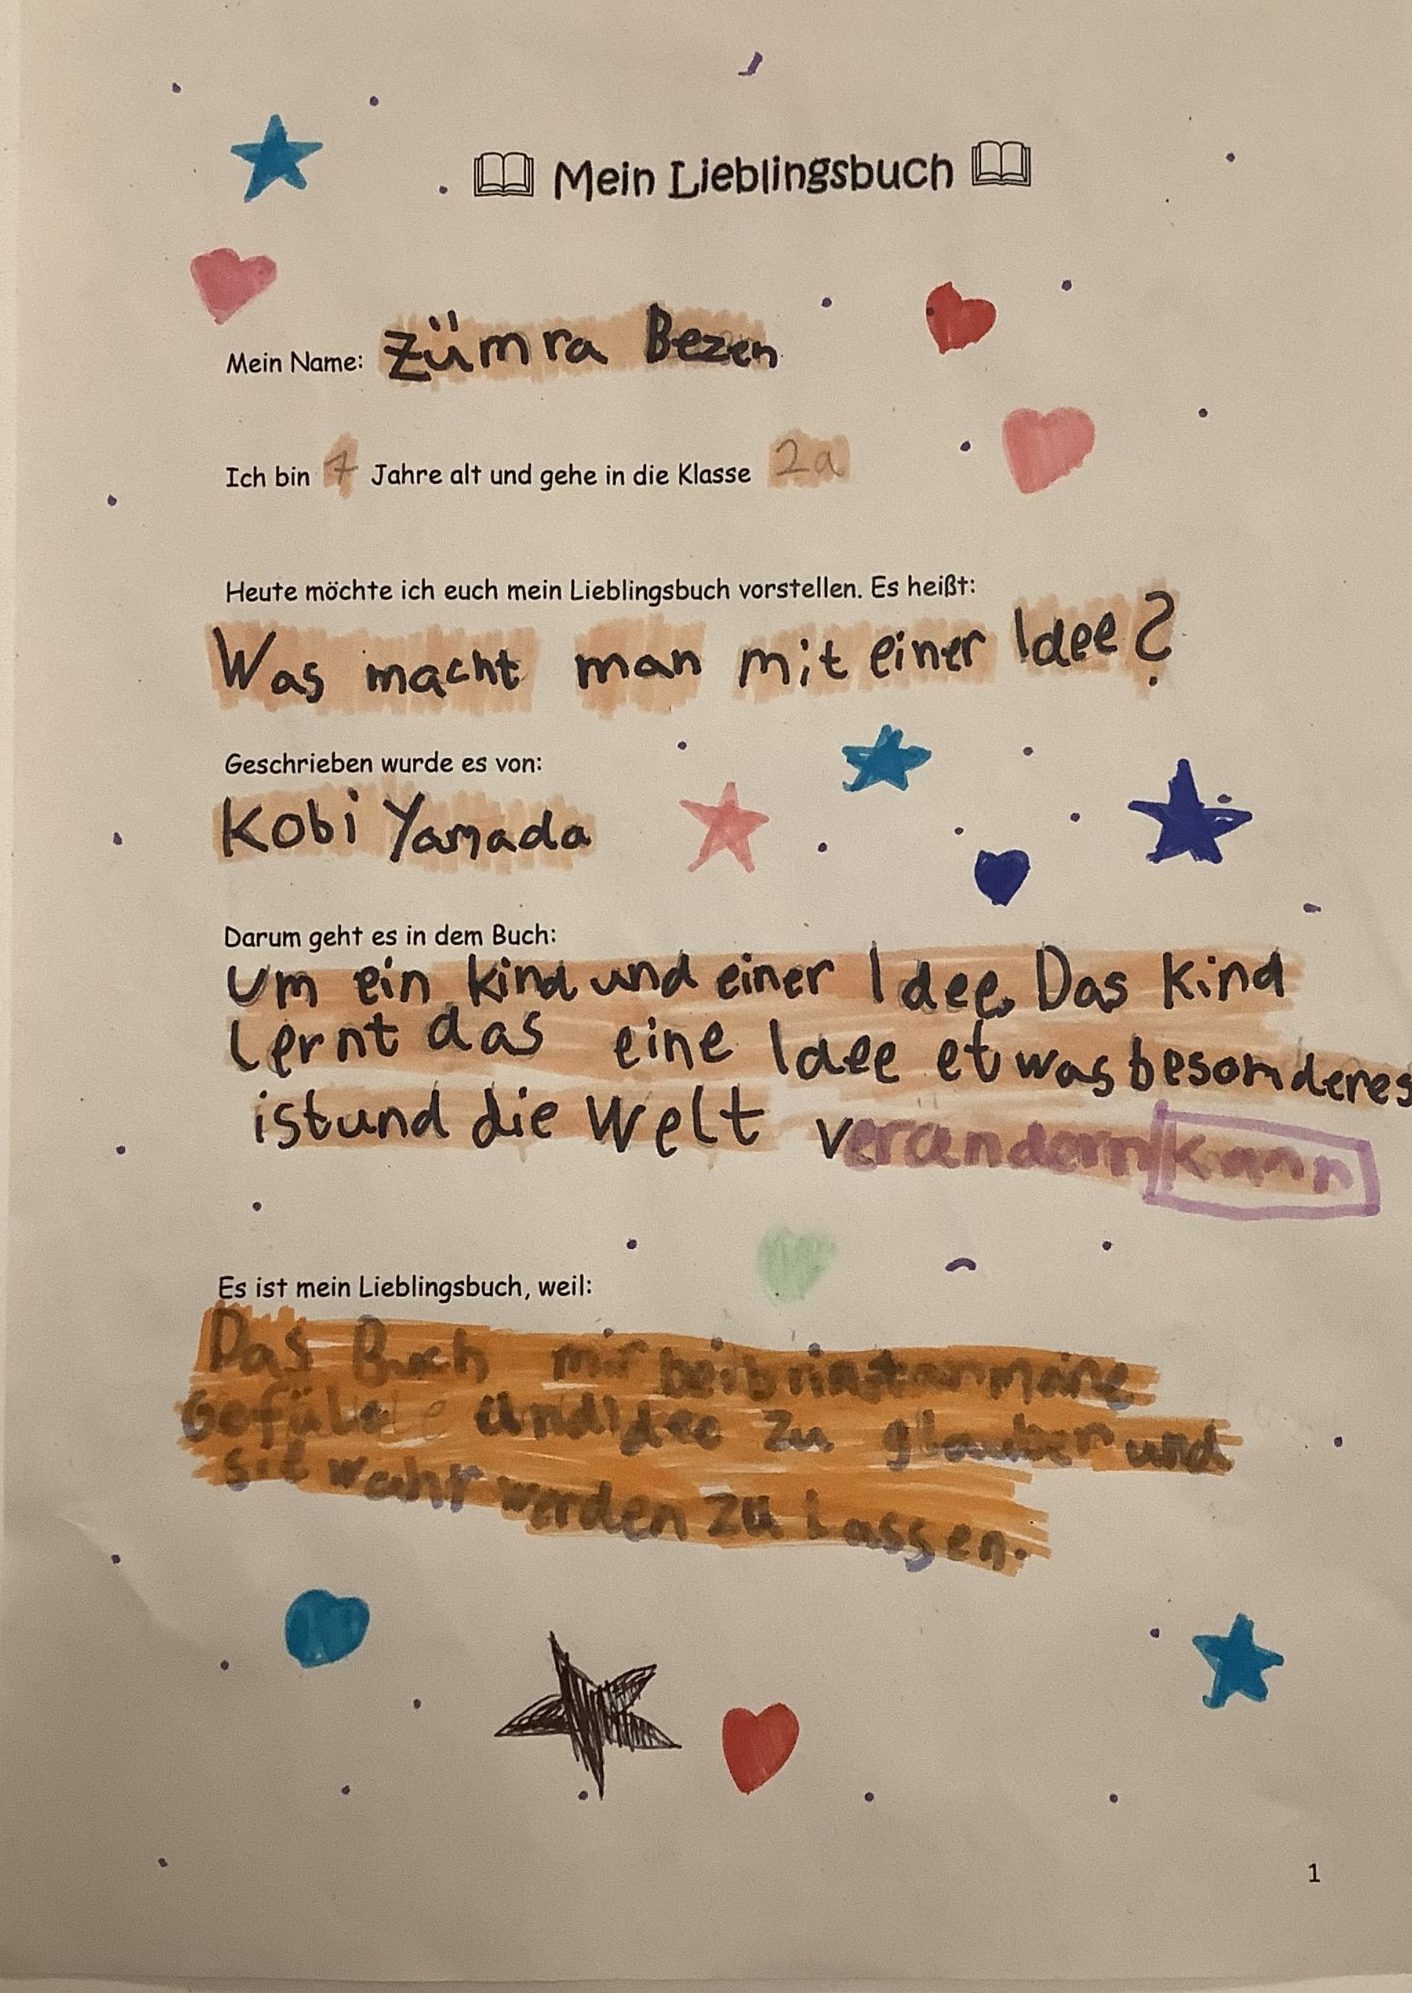 Mein Lieblingsbuch
Mein Name: Zümra Bezen
Ich bin 7 Jahre alt und gehe in die Klasse 2a
Heute möchte ich euch mein Lieblingsbuch vorstellen. Es heißt:
Was macht man mit einer Idee?
Geschrieben wurde es von:
Kobi Yamada
Darum geht es in dem Buch:
Um ein kind und einer Idee. Das Kind
lernt das eine Idee etwas besonderes
ist und die Welt verändern kann
Es ist mein Lieblingsbuch, weil:
Das Buch mir meine
Gefüle und Idee zu und
sie wahr werden zu lassen.
1